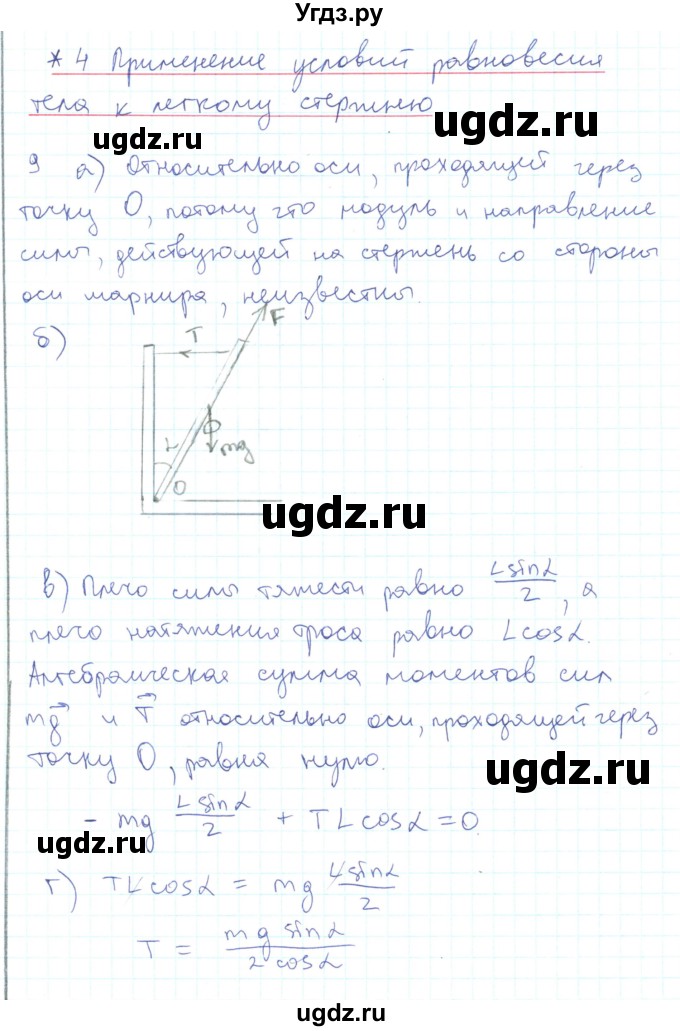 Угдз.ру
* 4 Применение условий равновесия
тела к легкому стержню
ugdz.ru
ugdz.ru
9 а) Относительно оси, проходящей через
точку O, потому что модуль и направление
силы, действующей на стержень со стороны
оси шарнира, неизвестны.
б)
T F
L mg
O
ugdz.ru
в) Плечо силы тяжести равно Lsinα/2, а
плечо натяжения троса равно Lcosα.
Алгебраическая сумма моментов сил
mg и T относительно оси, проходящей через
точку O, равна нулю.
ugdz.ru
- mg Lsinα/2 + TLcosα = 0.
ugdz.ru
г) TLcosα = mg Lsinα/2
T = mg sinα/2 cosα
ugdz.ru